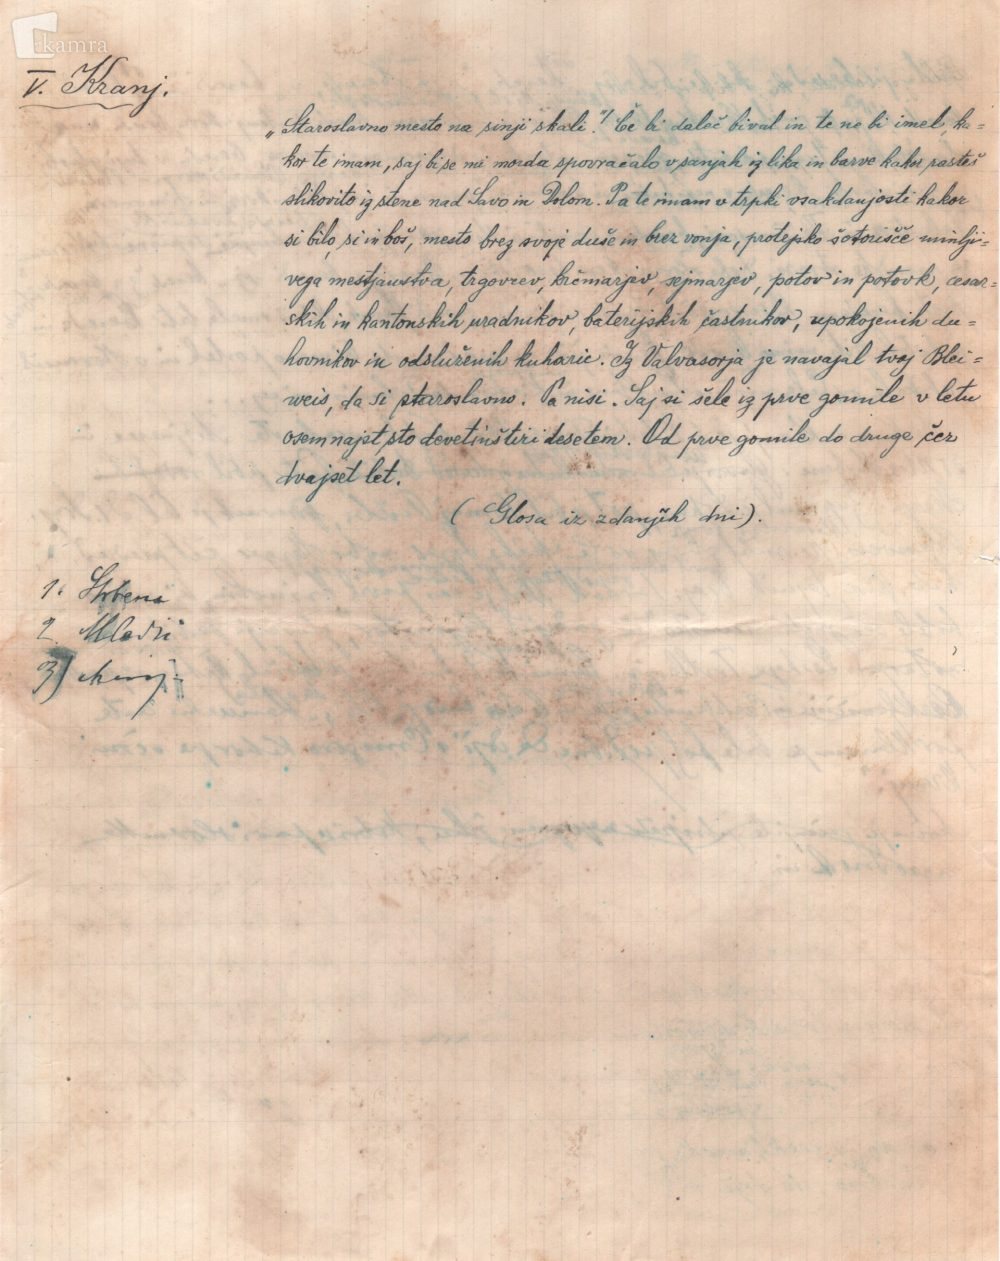 kamra
V. Kranj.
„Staroslavno mesto na sinji skali."/ Če bi daleč bival in te ne bi imel, ka-
kor te imam, saj bi se mi morda spovračalo v sanjah iz lika in barve kakor rasteš
slikovito iz stene nad Savo in Dolom. Pa te imam v trpki vsakdanjosti kakor
si bilo, si in boš, mesto brez svoje duše in brez vonja, protejsko šotorišče minlji-
vega mestjanstva, trgovcev, krčmarjev, sejmarjev, potov in potovk, cesar-
skih in kantonskih uradnikov, baterijskih častnikov, upokojenih du-
hovnikov in odsluženih kuharic. Iz Valvasorja je navajal tvoj Blei-
weis, da si staroslavno. Pa nisi. Saj si šele iz prve gomile v letu
osemnajst sto devetinštiridesetem. Od prve gomile do druge čez
dvajset let.
(Glosa iz zdanjih dni).
1.
2. Mladi
3)